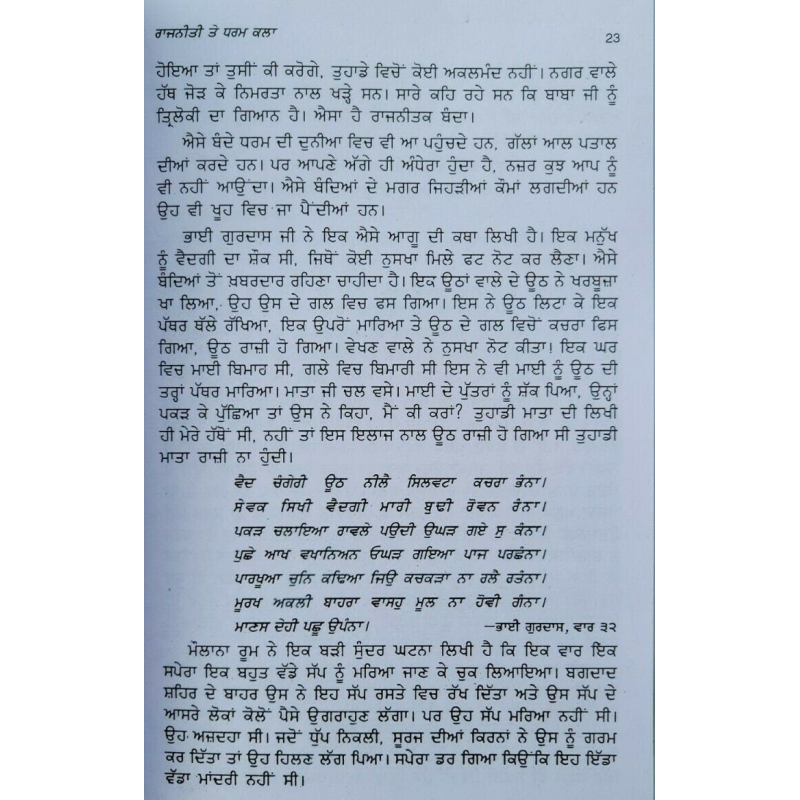 ਰਾਜਨੀਤੀ ਤੇ ਧਰਮ ਕਲਾ 23
ਹੋਇਆ ਤਾਂ ਤੁਸੀਂ ਕੀ ਕਰੋਗੇ, ਤੁਹਾਡੇ ਵਿਚੋਂ ਕੋਈ ਅਕਲਮੰਦ ਨਹੀਂ। ਨਗਰ ਵਾਲੇ
ਹੱਥ ਜੋੜ ਕੇ ਨਿਮਰਤਾ ਨਾਲ ਖੜ੍ਹੇ ਸਨ। ਸਾਰੇ ਕਹਿ ਰਹੇ ਸਨ ਕਿ ਬਾਬਾ ਜੀ ਨੂੰ
ਤ੍ਰਿਲੋਕੀ ਦਾ ਗਿਆਨ ਹੈ। ਐਸਾ ਹੈ ਰਾਜਨੀਤਕ ਬੰਦਾ।
ਐਸੇ ਬੰਦੇ ਧਰਮ ਦੀ ਦੁਨੀਆ ਵਿਚ ਵੀ ਆ ਪਹੁੰਚਦੇ ਹਨ, ਗੱਲਾਂ ਆਲ ਪਤਾਲ
ਦੀਆਂ ਕਰਦੇ ਹਨ। ਪਰ ਆਪਣੇ ਅੱਗੇ ਹੀ ਅੰਧੇਰਾ ਹੁੰਦਾ ਹੈ, ਨਜ਼ਰ ਕੁਝ ਆਪ ਨੂੰ
ਵੀ ਨਹੀਂ ਆਉਂਦਾ। ਐਸੇ ਬੰਦਿਆਂ ਦੇ ਮਗਰ ਜਿਹੜੀਆਂ ਕੌਮਾਂ ਲਗਦੀਆਂ ਹਨ
ਉਹ ਵੀ ਖੂਹ ਵਿਚ ਜਾ ਪੈਂਦੀਆਂ ਹਨ।
ਭਾਈ ਗੁਰਦਾਸ ਜੀ ਨੇ ਇਕ ਐਸੇ ਆਗੂ ਦੀ ਕਥਾ ਲਿਖੀ ਹੈ। ਇਕ ਮਨੁੱਖ
ਨੂੰ ਵੈਦਗੀ ਦਾ ਸ਼ੌਕ ਸੀ, ਜਿਥੋਂ ਕੋਈ ਨੁਸਖਾ ਮਿਲੇ ਫਟ ਨੋਟ ਕਰ ਲੈਣਾ। ਐਸੇ
ਬੰਦਿਆਂ ਤੋਂ ਖ਼ਬਰਦਾਰ ਰਹਿਣਾ ਚਾਹੀਦਾ ਹੈ। ਇਕ ਊਠਾਂ ਵਾਲੇ ਦੇ ਊਠ ਨੇ ਖਰਬੂਜ਼ਾ
ਖਾ ਲਿਆ, ਉਹ ਉਸ ਦੇ ਗਲ ਵਿਚ ਫਸ ਗਿਆ। ਇਸ ਨੇ ਊਠ ਲਿਟਾ ਕੇ ਇਕ
ਪੱਥਰ ਥੱਲੇ ਰੱਖਿਆ, ਇਕ ਉਪਰੋਂ ਮਾਰਿਆ ਤੇ ਊਠ ਦੇ ਗਲ ਵਿਚੋਂ ਕਚਰਾ ਫਿਸ
ਗਿਆ, ਊਠ ਰਾਜ਼ੀ ਹੋ ਗਿਆ। ਵੇਖਣ ਵਾਲੇ ਨੇ ਨੁਸਖਾ ਨੋਟ ਕੀਤਾ! ਇਕ ਘਰ
ਵਿਚ ਮਾਈ ਬਿਮਾਹ ਸੀ, ਗਲੇ ਵਿਚ ਬਿਮਾਰੀ ਸੀ ਇਸ ਨੇ ਵੀ ਮਾਈ ਨੂੰ ਊਠ ਦੀ
ਤਰ੍ਹਾਂ ਪੱਥਰ ਮਾਰਿਆ। ਮਾਤਾ ਜੀ ਚਲ ਵਸੇ। ਮਾਈ ਦੇ ਪੁੱਤਰਾਂ ਨੂੰ ਸ਼ੱਕ ਪਿਆ, ਉਨ੍ਹਾਂ
ਪਕੜ ਕੇ ਪੁੱਛਿਆ ਤਾਂ ਉਸ ਨੇ ਕਿਹਾ, ਮੈਂ ਕੀ ਕਰਾਂ? ਤੁਹਾਡੀ ਮਾਤਾ ਦੀ ਲਿਖੀ
ਹੀ ਮੇਰੇ ਹੱਥੋਂ ਸੀ, ਨਹੀਂ ਤਾਂ ਇਸ ਇਲਾਜ ਨਾਲ ਊਠ ਰਾਜ਼ੀ ਹੋ ਗਿਆ ਸੀ ਤੁਹਾਡੀ
ਮਾਤਾ ਰਾਜ਼ੀ ਨਾ ਹੁੰਦੀ।
ਵੈਦ ਚੰਗੇਰੀ ਊਠ ਨੀਲੈ ਸਿਲਵਟਾ ਕਚਰਾ ਭੰਨਾ।
ਸੇਵਕ ਸਿਖੀ ਵੈਦਗੀ ਮਾਰੀ ਬੁਢੀ ਰੋਵਨ ਰੰਨਾ।
ਪਕੜ ਚਲਾਇਆ ਰਾਵਲੇ ਪਉਦੀ ਉਘੜ ਗਏ ਸੁ ਕੰਨਾ।
ਪੁਛੇ ਆਖ ਵਖਾਨਿਅਨ ਓਘੜ ਗਇਆ ਪਾਜ ਪਰਛੰਨਾ।
ਪਾਰਖੂਆ ਚੁਨਿ ਕਢਿਆ ਜਿਉ ਕਚਕੜਾ ਨਾ ਰਲੈ ਰਤੰਨਾ।
ਮੂਰਖ ਅਕਲੀ ਬਾਹਰਾ ਵਾਸਹੁ ਮੂਲ ਨਾ ਹੋਵੀ ਗੰਨਾ।
ਮਾਣਸ ਦੇਹੀ ਪਛੂ ਉਪੰਨਾ। —ਭਾਈ ਗੁਰਦਾਸ, ਵਾਰ ੩੨
ਮੌਲਾਨਾ ਰੂਮ ਨੇ ਇਕ ਬੜੀ ਸੁੰਦਰ ਘਟਨਾ ਲਿਖੀ ਹੈ ਕਿ ਇਕ ਵਾਰ ਇੱਕ
ਸਪੇਰਾ ਇਕ ਬਹੁਤ ਵੱਡੇ ਸੱਪ ਨੂੰ ਮਰਿਆ ਜਾਣ ਕੇ ਚੁਕ ਲਿਆਇਆ। ਬਗਦਾਦ
ਸ਼ਹਿਰ ਦੇ ਬਾਹਰ ਉਸ ਨੇ ਇਹ ਸੱਪ ਰਸਤੇ ਵਿਚ ਰੱਖ ਦਿੱਤਾ ਅਤੇ ਉਸ ਸੱਪ ਦੇ
ਆਸਰੇ ਲੋਕਾਂ ਕੋਲੋਂ ਪੈਸੇ ਉਗਰਾਹੁਣ ਲੱਗਾ। ਪਰ ਉਹ ਸੱਪ ਮਰਿਆ ਨਹੀਂ ਸੀ।
ਉਹ ਅਜ਼ਦਹਾ ਸੀ। ਜਦੋਂ ਧੁੱਪ ਨਿਕਲੀ, ਸੂਰਜ ਦੀਆਂ ਕਿਰਨਾਂ ਨੇ ਉਸ ਨੂੰ ਗਰਮ
ਕਰ ਦਿੱਤਾ ਤਾਂ ਉਹ ਹਿਲਣ ਲੱਗ ਪਿਆ। ਸਪੇਰਾ ਡਰ ਗਿਆ ਕਿਉਂਕਿ ਇਹ ਇੱਡਾ
ਵੱਡਾ ਮਾਂਦਰੀ ਨਹੀਂ ਸੀ।